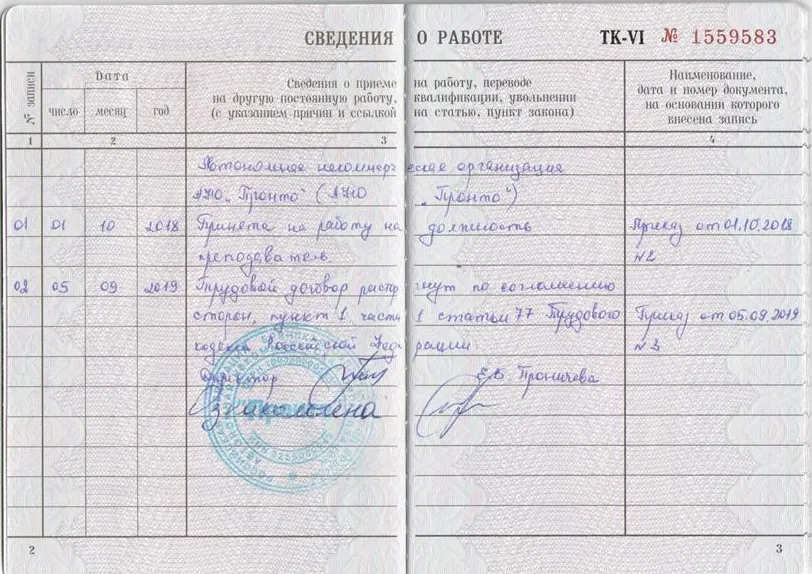 СВЕДЕНИЯ О РАБОТЕ ТК-VI № 1559583
№ записи
Дата
число месяц год
Сведения о приеме на работу, переводе
на другую постоянную работу, квалификации, увольнении
(с указанием причин и ссылкой на статью, пункт закона)
Наименование,
дата и номер документа,
на основании которого
внесена запись
1 2 3 4
Автономная некоммерческая организация
АНО „Пронто" (АНО „Пронто")
01 01 10 2018 Принята на работу на должность Приказ от 01.10.2018
преподаватель №2
02 05 09 2019 Трудовой договор расторгнут по соглашению
сторон, пункт 1 части 1 статьи 77 Трудового Приказ от 05.09.2019
кодекса Российской Федерации. №3
Директор Е.В. Проничева
Ознакомлена
2 3